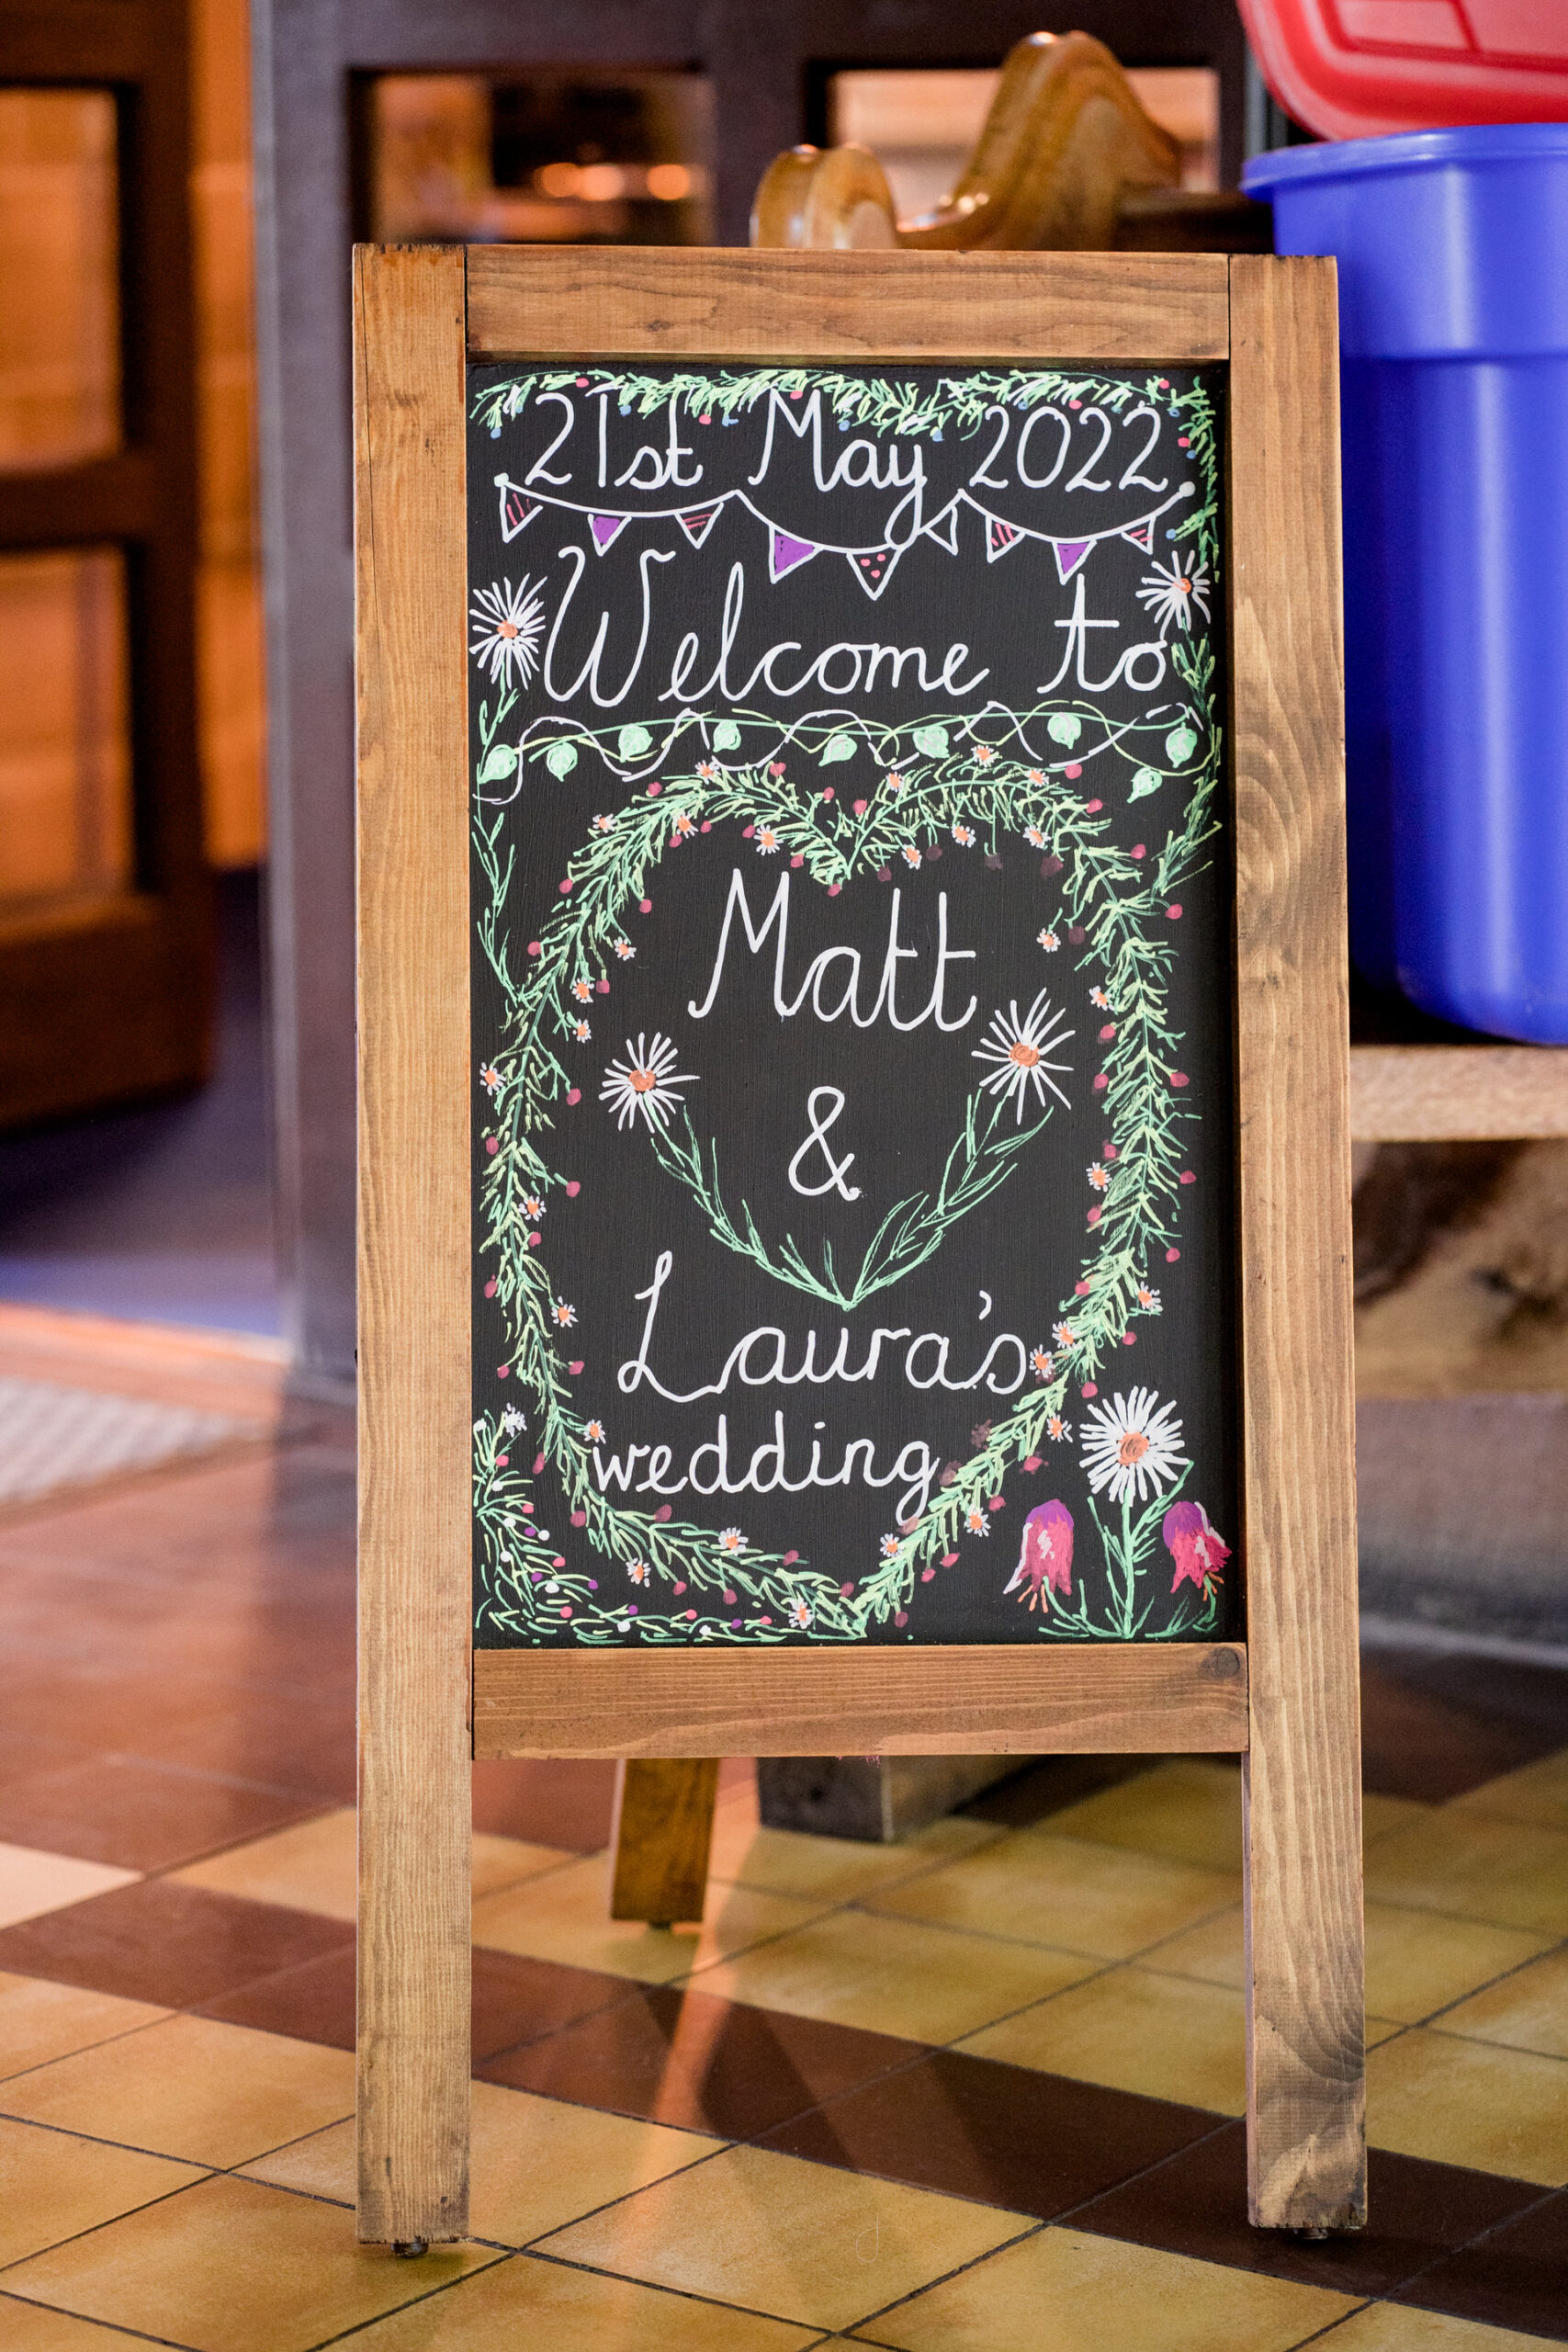 21st May 2022
Welcome to
Matt
&
Laura's
wedding